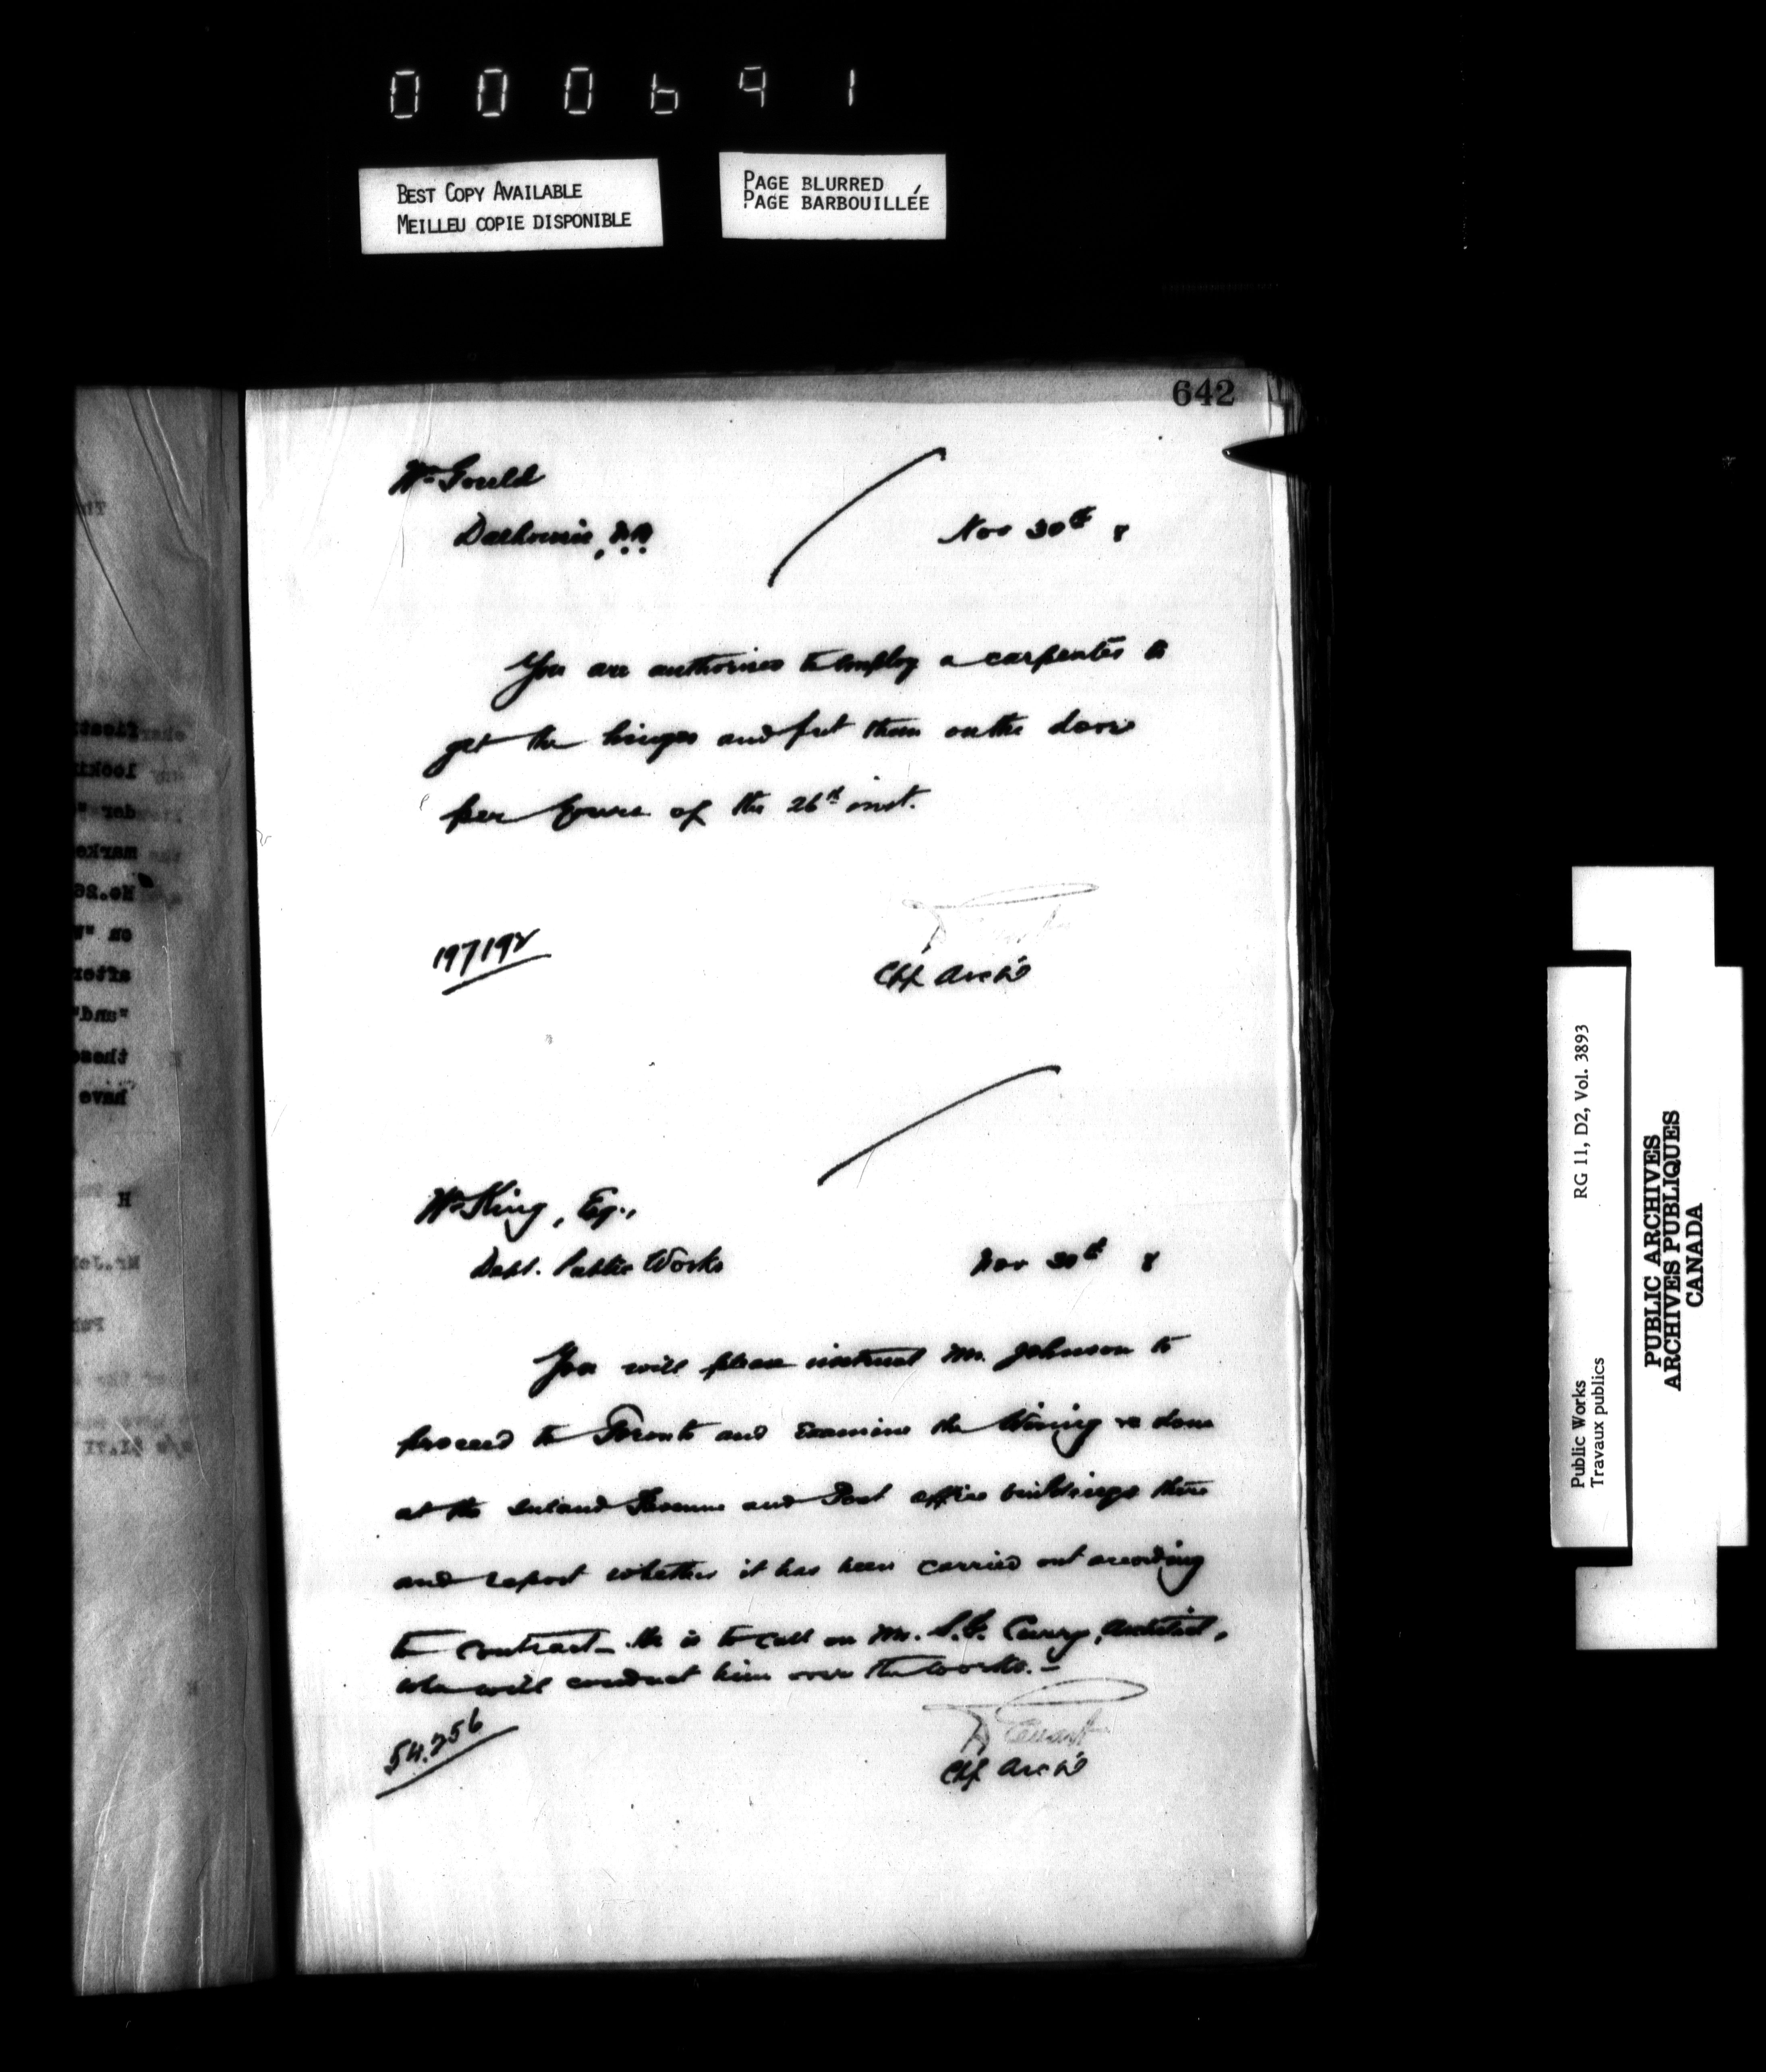 000691
BEST COPY AVAILABLE
MEILLEU COPIE DISPONIBLE
PAGE BLURRED
PAGE BARBOUILLÉE
642
Wm Gould
Dalhousie, N.B.
Nov 30th 8
You are authorised to employ a carpenter to
get the hinges and put them on the doors
per yours of the 26th inst.
197192
Chf Archt
Wm King, Esq.,
Dept. Public Works
Nov 30th 8
You will please instruct Mr. Johnson to
proceed to Toronto and examine the Wiring re done
at the Inland Revenue and Post office buildings there
and report whether it has been carried out according
to contract_ He is to call on Mr. S.G. Curry, Architect,
who will conduct him over the works. –
54.256
D Ewart
Chf Archt
Public Works
Travaux publics
RG 11, D2, Vol. 3893
PUBLIC ARCHIVES
ARCHIVES PUBLIQUES
CANADA